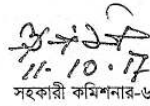 11.10.17
সহকারী কমিশনার-৬